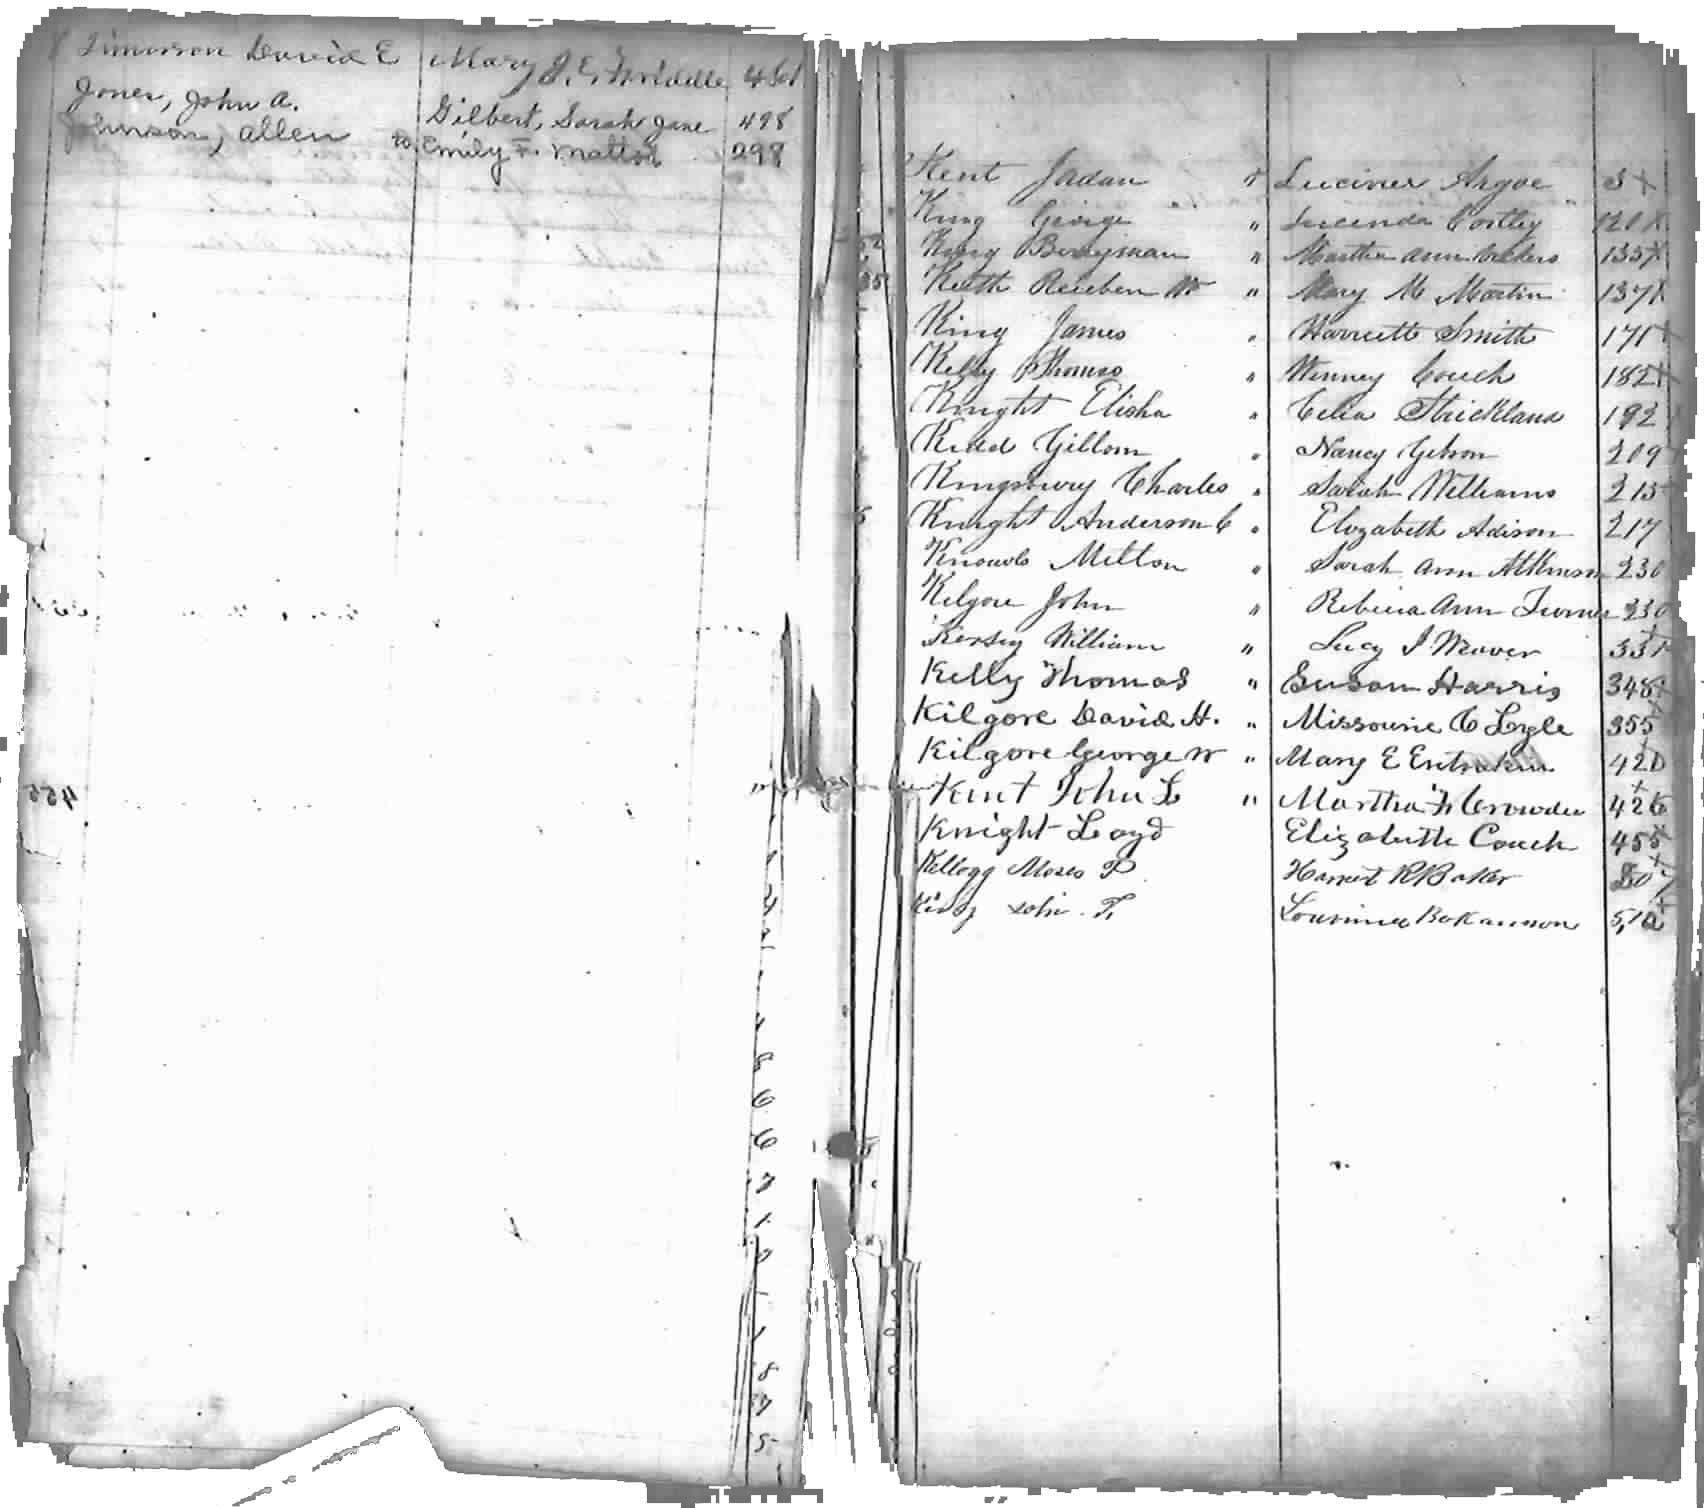 Jimerson David E Mary J. E. Widdle 461
Jones, John A. Gilbert, Sarah Jane 498
Johnson, Allen to Emily F. Mattox 298
Kent Jadan Luciner Argoe 3
King George " Lucenda Cortley 120
King Berryman " Martha Ann 135
Keith Reuben W " Mary M Martin 137
King James " Harriett Smith 171
Kelly Thomas " Winney Couch 182
Knight Elisha " Celia Strickland 192
Kidd Gillom " Nancy Gibson 209
Kingsbury Charles " Sarah Williams 213
Knight Anderson C " Elizabeth Adison 217
Knowls Milton " Sarah Ann Atkinson 230
Kilgore John " Rebecca Ann Turner 230
Kersey William " Lucy J Meaver 331
Kelly Thomas " Susan Harris 348
Kilgore David H. " Missourie C Lyle 355
Kilgore George W " Mary E Entrekin 420
Kent John L " Martha F Crowder 426
Knight Loyd Elizabeth Couch 455
Kellogg Moses P Harriet R Baker 507
King John T. Bohannon 510